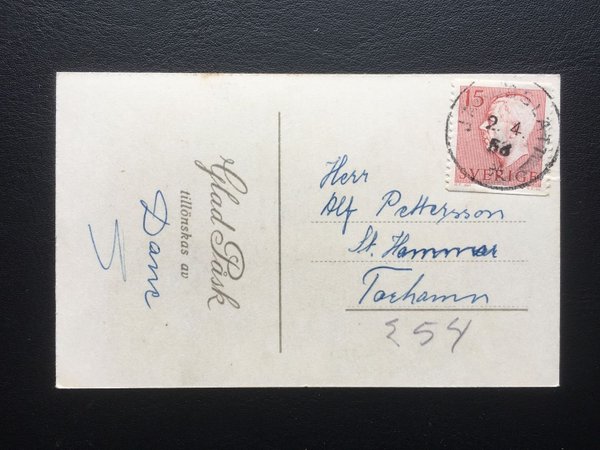 Glad Påsk
tillönskas av
15
SVERIGE
2. 4.
56
Herr
Alf Pettersson
St. Hammar
Torhamn
254